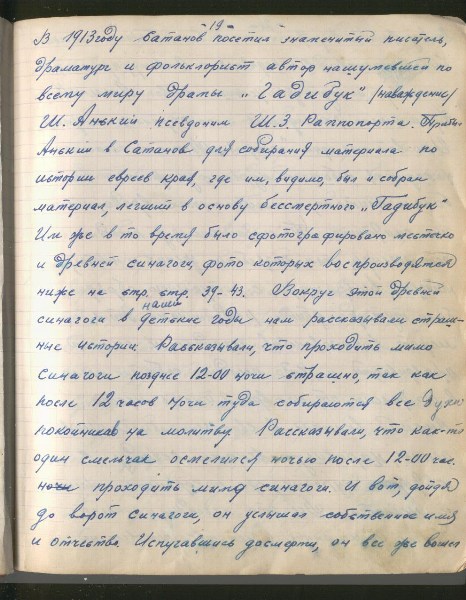 - 19 -
В 1913 году Сатанов посетил знаменитый писатель,
драматург и фольклорист автор нашумевшей по
всему миру драмы „Гадибук" /наваждение/
Ш. Анский псевдоним Ш.З. Раппопорта.
Анский в Сатанов для собирания материала по
истории евреев края, где им, видимо, был и собран
материал, легший в основу бессмертного „Гадибук"
Им же в то время было сфотографировано местечко
и древней синагоги, фото которых воспроизводятся
ниже на стр. стр. 39. 43. Вокруг этой древней
синагоги в наши детские годы нам рассказывали страш-
ные истории. Рассказывали, что проходить мимо
синагоги позднее 12-00 ночи страшно, так как
после 12 часов ночи туда собираются все духи
покойников на молитву. Рассказывали, что как-то
один смельчак осмелился ночью после 12-00 час.
ночи проходить мимо синагоги. И вот, дойдя
до ворот синагоги, он услышал собственное имя
и отчество. Испугавшись досмерти, он все же вошел